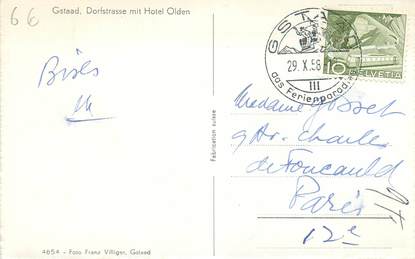 66
Gstaad, Dorfstrasse mit Hotel Olden
GSTAAD
29. X. 56
III
das Ferienparadies
10
HELVETIA
Madame
9 Av. Charles
de Foucauld
Paris
12e
Fabrication suisse
4654 - Foto Franz Villiger, Gstaad